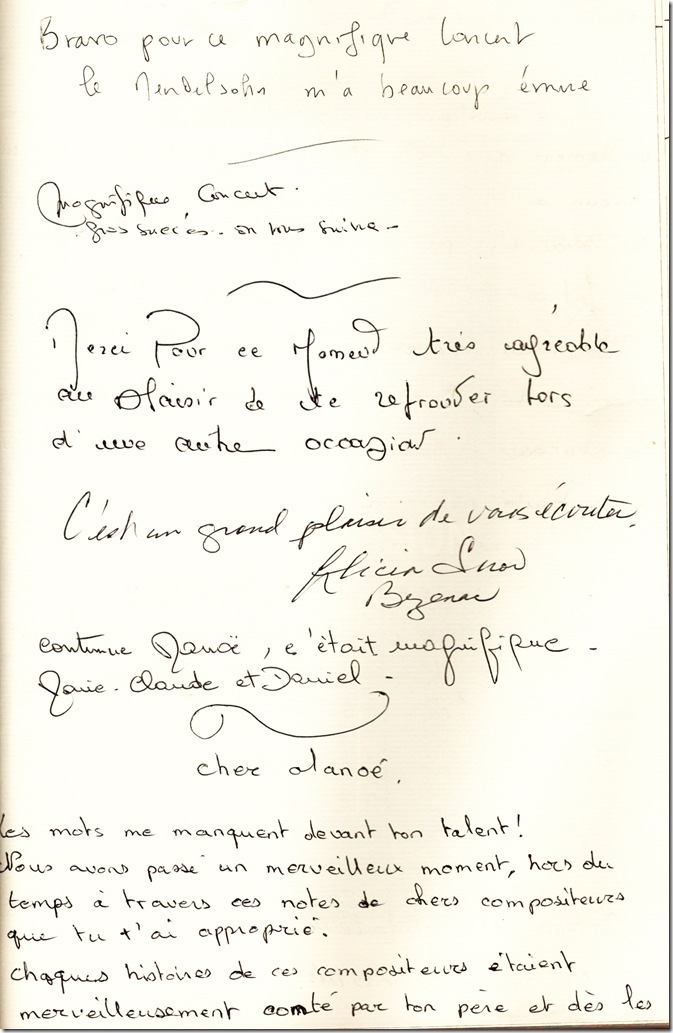 Bravo pour ce magnifique Concert
le Mendelsohn m'a beaucoup émue
Magnifique Concert.
gros succès - on vous suivra -
Merci Pour ce Moment très agréable
au plaisir de te retrouver lors
d'une autre occasion.
C'est un grand plaisir de vous écouter.
Alicia
continue Manoë, c'était magnifique -
Marie-Claude et Daniel -
cher Manoé,
Les mots me manquent devant ton talent!
Nous avons passé un merveilleux moment, hors du
temps à travers ces notes de chers compositeurs
que tu t'ai approprié.
chaques histoires de ces compositeurs étaient
merveilleusement conté par ton père et dès les